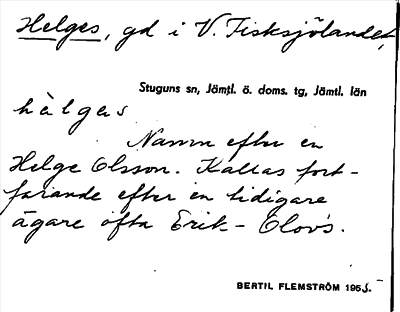 Helges, gd i V. Fisksjölandet,
Stuguns sn, Jämtl. ö. doms. tg, Jämtl. län
hèlgas
Namn efter en
Helge Olsson. Kallas fort-
farande efter en tidigare
ägare ofta Erik-Olovs.
BERTIL FLEMSTRÖM 1955.